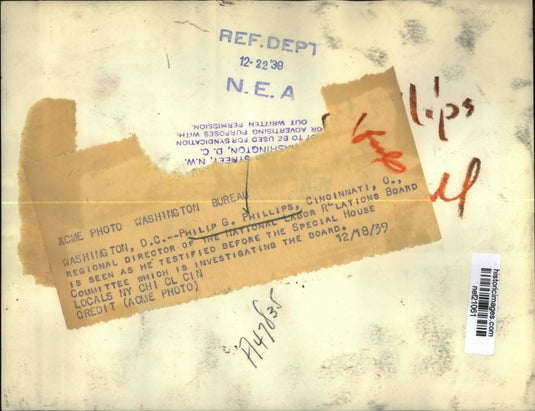 REF. DEPT
12-22 '39
N. E. A
STREET, N.W.
WASHINGTON, D. C.
NOT TO BE USED FOR SYNDICATION
OR ADVERTISING PURPOSES WITH-
OUT WRITTEN PERMISSION.
ACME PHOTO WASHINGTON BUREAU
WASHINGTON, D.C.--PHILIP G. PHILLIPS, CINCINNATI, O.,
REGIONAL DIRECTOR OF THE NATIONAL LABOR RELATIONS BOARD
IS SEEN AS HE TESTIFIED BEFORE THE SPECIAL HOUSE
COMMITTEE WHICH IS INVESTIGATING THE BOARD.
LOCALS NY CHI CL CIN 12/18/39
CREDIT (ACME PHOTO)
historicimages.com
net21061